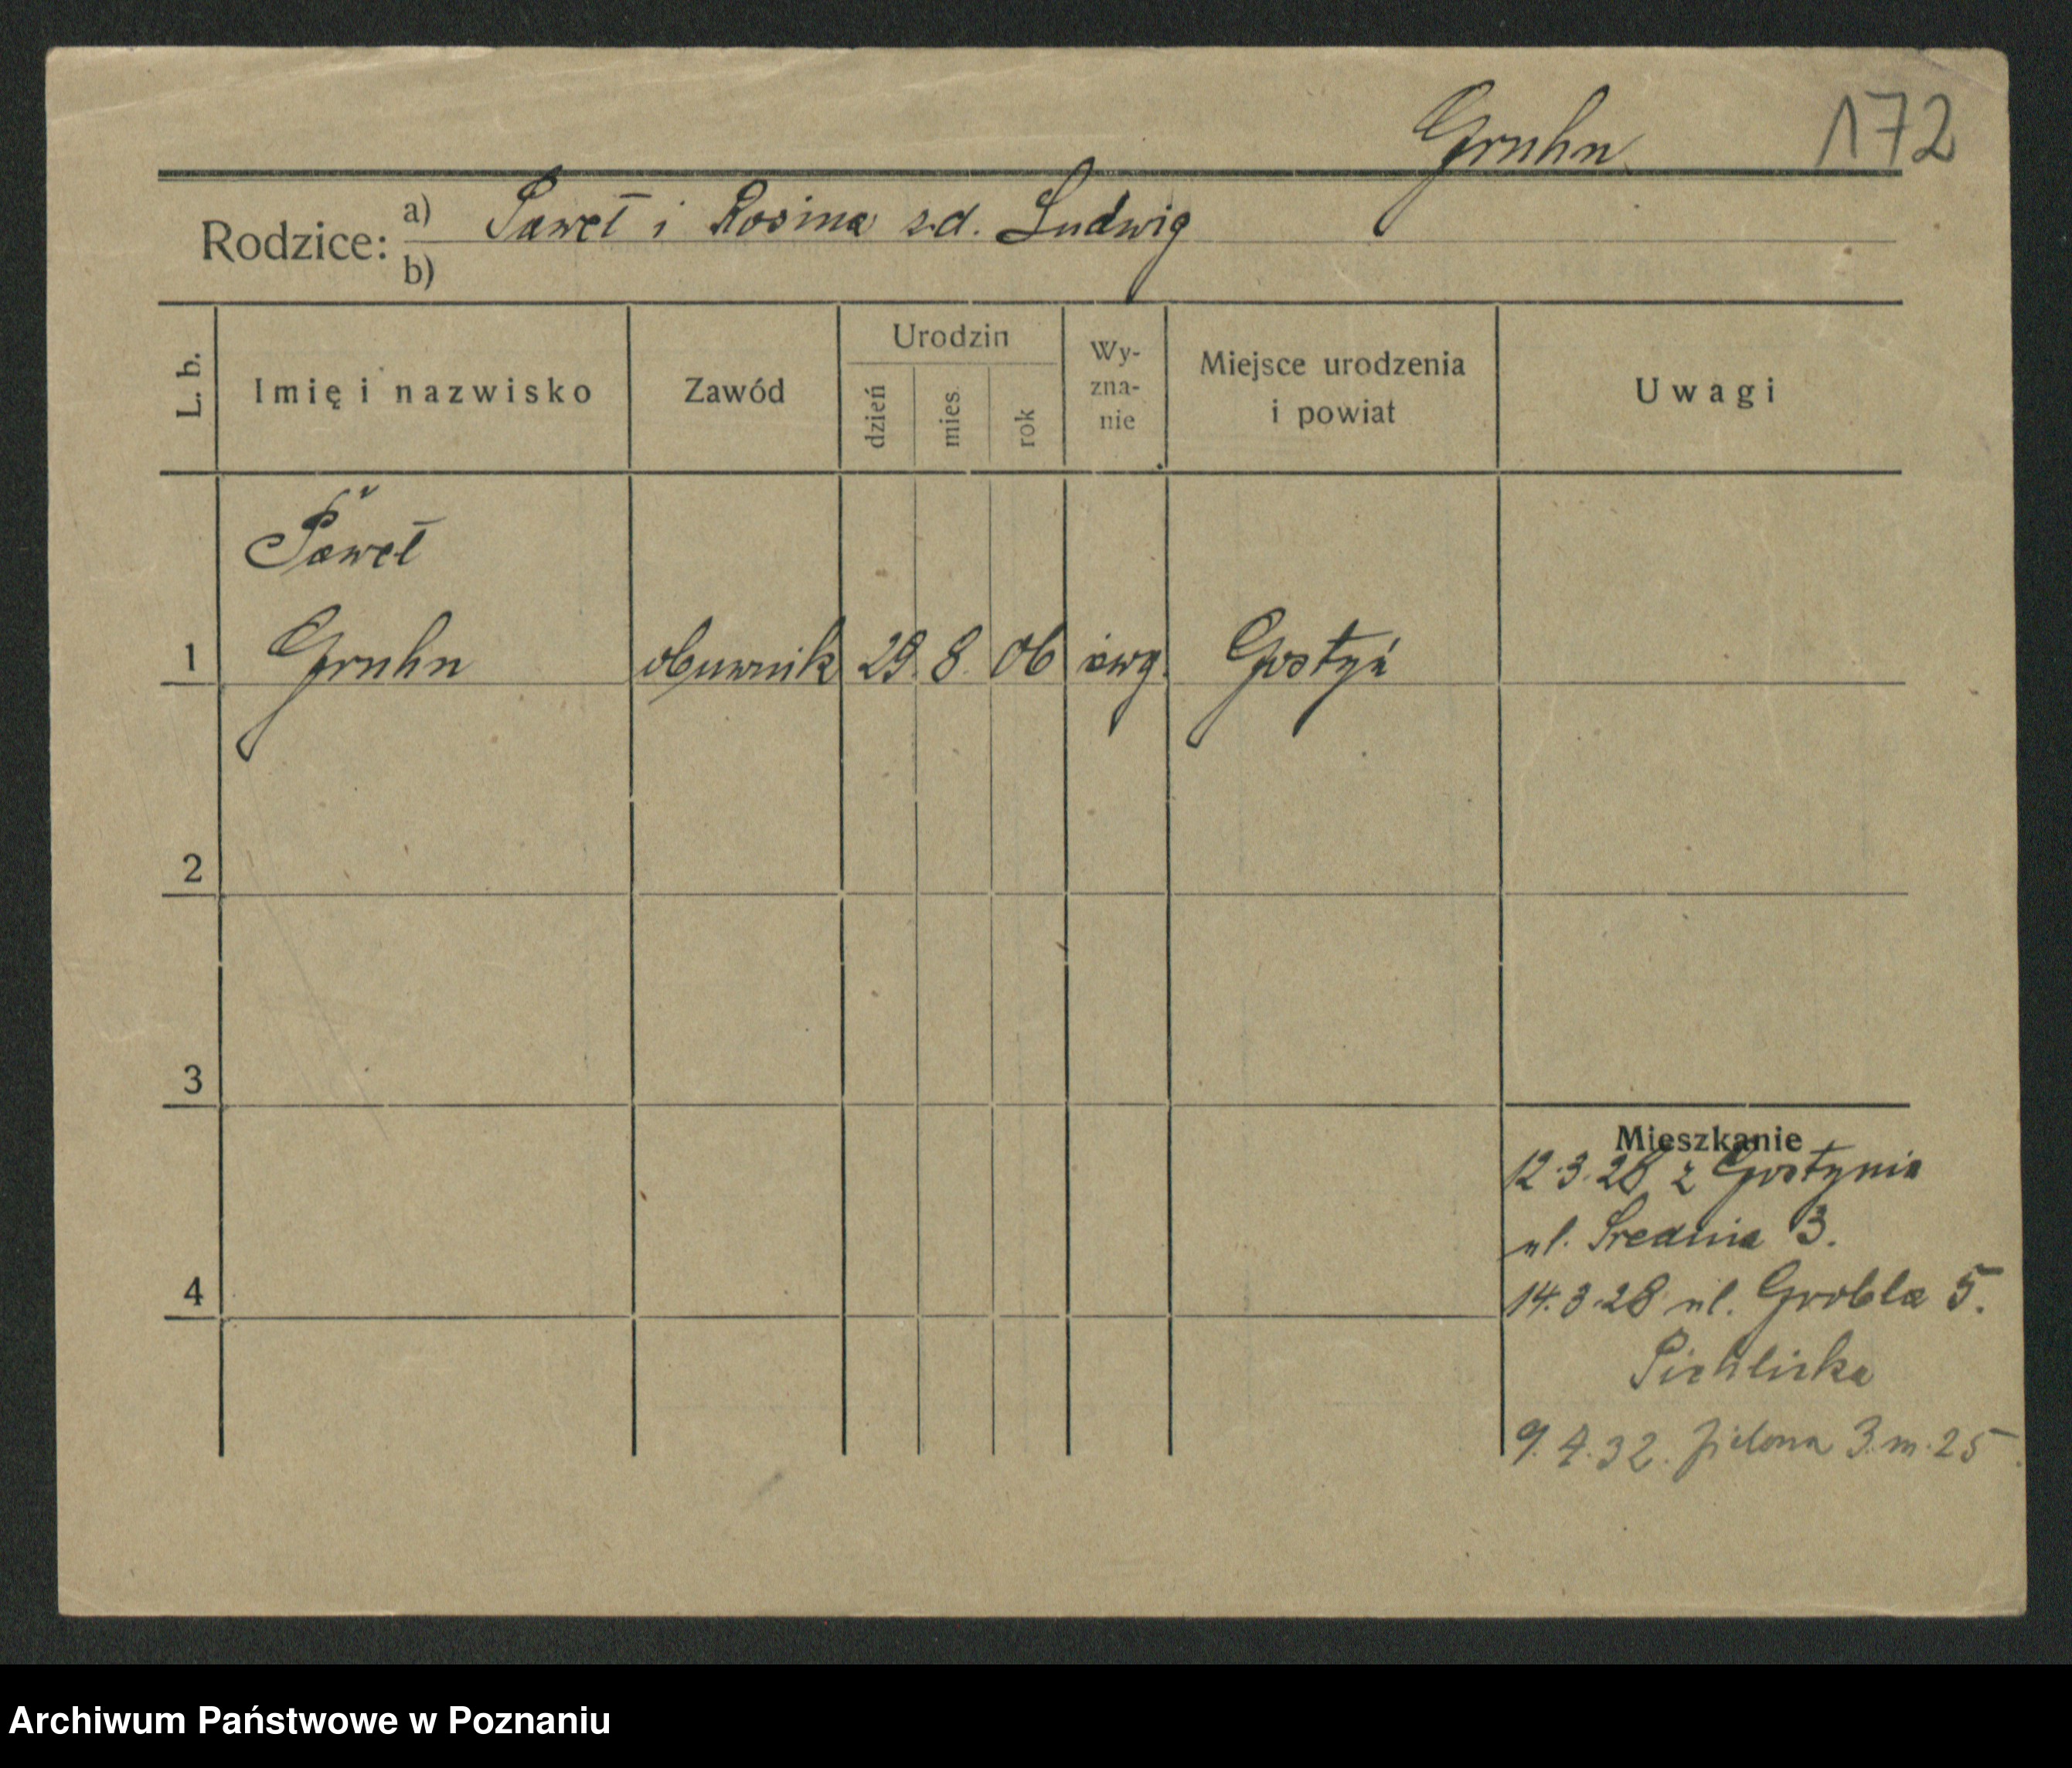 Gruhn 172
Rodzice: a) Paweł i Rosina z.d. Ludwig
b)
L. b. Imię i nazwisko Zawód Urodzin dzień mies. rok Wy-zna-nie Miejsce urodzenia i powiat Uwagi
Paweł
1 Gruhn obuwnik 29. 8. 06 ewg. Gostyń
2
3
Mieszkanie
12.3.28 z Gostynia
ul. Średnia 3.
4 14.3.28 ul. Grobla 5.
9.4.32. Zielona 3 m. 25.
Archiwum Państwowe w Poznaniu